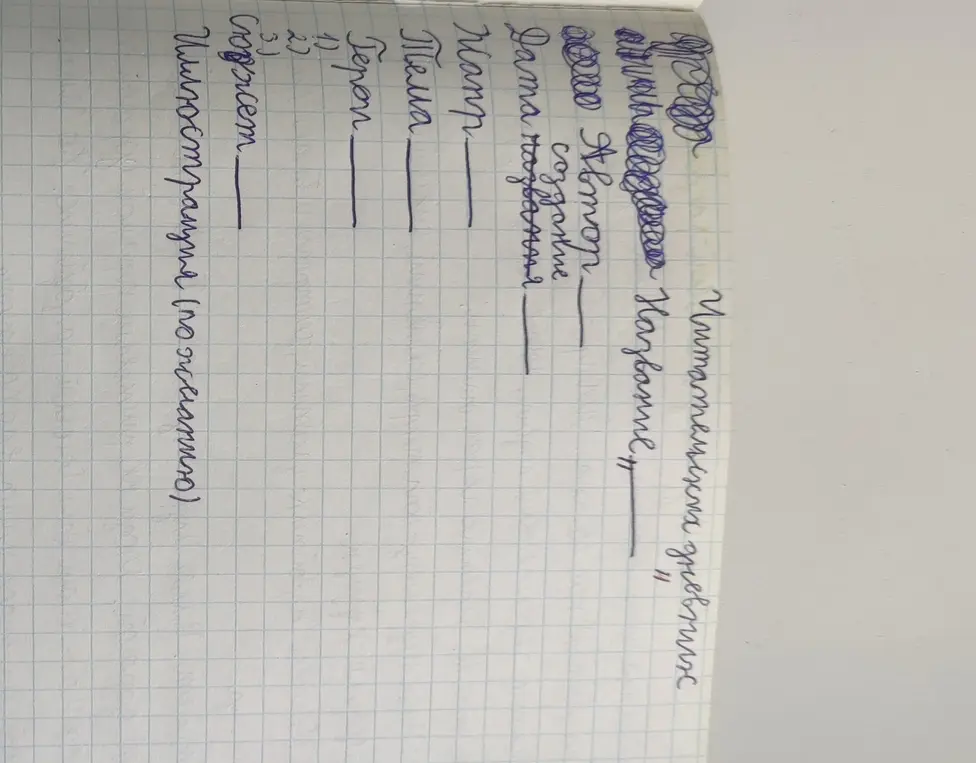 Читательский дневник
Название „_____"
Автор_____
создание
Дата названия_____
Жанр_____
Тема_____
Герои_____
1)
2)
3)
Сюжет_____
Иллюстрация (по желанию)